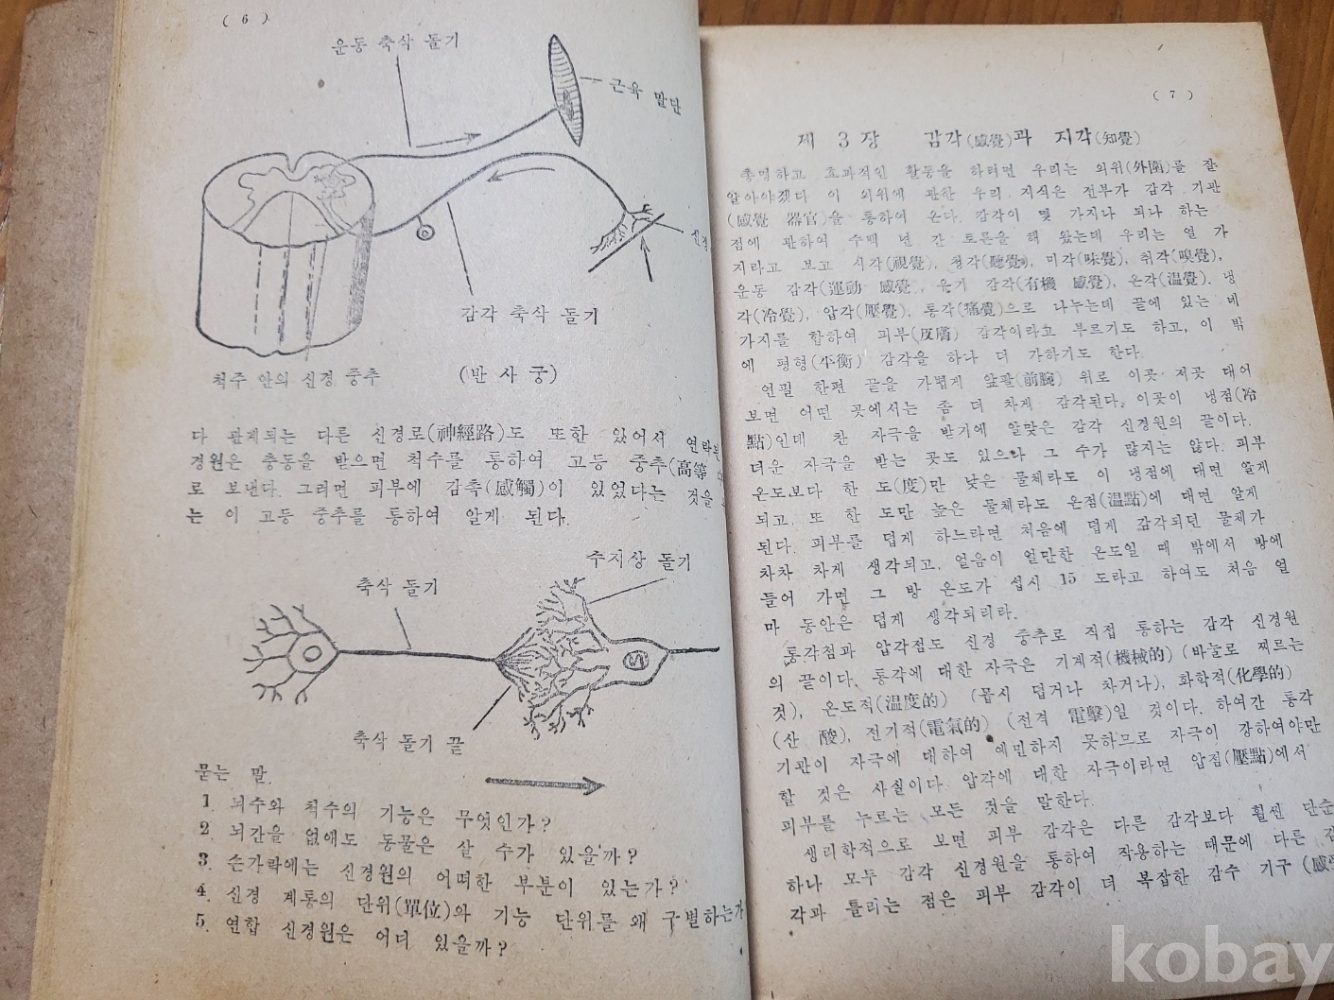 ( 6 )
운동 축삭 돌기
근육 말단
감각 축삭 돌기
척주 안의 신경 중추
(반 사 궁)
다 관계되는 다른 신경로(神經路)도 또한 있어서 연락
경원은 충동을 받으면 척수를 통하여 고등 중추(高等
로 보낸다. 그러면 피부에 감촉(感觸)이 있었다는 것을
는 이 고등 중추를 통하여 알게 된다.
수지상 돌기
축삭 돌기
축삭 돌기 끝
묻는 말.
1. 뇌수와 척수의 기능은 무엇인가?
2. 뇌간을 없애도 동물은 살 수가 있을까?
3. 손가락에는 신경원의 어떠한 부분이 있는가?
4. 신경 계통의 단위(單位)와 기능 단위를 왜 구별하는가
5. 연합 신경원은 어디 있을까?
( 7 )
제 3 장 감각(感覺)과 지각(知覺)
총명하고 효과적인 활동을 하려면 우리는 외위(外圍)를 잘
알아야겠다 이 외위에 관한 우리 지식은 전부가 감각 기관
(感覺 器官)을 통하여 온다. 감각이 몇 가지나 되나 하는
점에 관하여 수백 년 간 토론을 해 왔는데 우리는 열 가
지라고 보고 시각(視覺), 청각(聽覺), 미각(味覺), 취각(嗅覺),
운동 감각(運動 感覺), 유기 감각(有機 感覺), 온각(温覺), 냉
각(冷覺), 압각(壓覺), 통각(痛覺)으로 나누는데 끝에 있는 네
가지를 합하여 피부(皮膚) 감각이라고 부르기도 하고, 이 밖
에 평형(平衡) 감각을 하나 더 가하기도 한다.
연필 한편 끝을 가볍게 앞팔(前腕) 위로 이곳 저곳 대어
보면 어떤 곳에서는 좀 더 차게 감각된다. 이곳이 냉점(冷
點)인데 찬 자극을 받기에 알맞은 감각 신경원의 끝이다.
더운 자극을 받는 곳도 있으나 그 수가 많지는 않다. 피부
온도보다 한 도(度)만 낮은 물체라도 이 냉점에 대면 알게
되고, 또 한 도만 높은 물체라도 온점(温點)에 대면 알게
된다. 피부를 덥게 하느라면 처음에 덥게 감각되던 물체가
차차 차게 생각되고, 얼음이 얼만한 온도일 때 밖에서 방에
들어 가면 그 방 온도가 섭시 15 도라고 하여도 처음 얼
마 동안은 덥게 생각되리라.
통각점과 압각점도 신경 중추로 직접 통하는 감각 신경원
의 끝이다. 통각에 대한 자극은 기계적(機械的) (바늘로 찌르는
것), 온도적(温度的) (몹시 덥거나 차거나), 화학적(化學的)
(산 酸), 전기적(電氣的) (전격 電擊)일 것이다. 하여간 통각
기관이 자극에 대하여 예민하지 못하므로 자극이 강하여야만
할 것은 사실이다. 압각에 대한 자극이라면 압점(壓點)에서
피부를 누르는 모든 것을 말한다.
생리학적으로 보면 피부 감각은 다른 감각보다 훨씬 단순
하나 모두 감각 신경원을 통하여 작용하는 때문에 다른 감
각과 틀리는 점은 피부 감각이 더 복잡한 감수 기구 (感
kobay